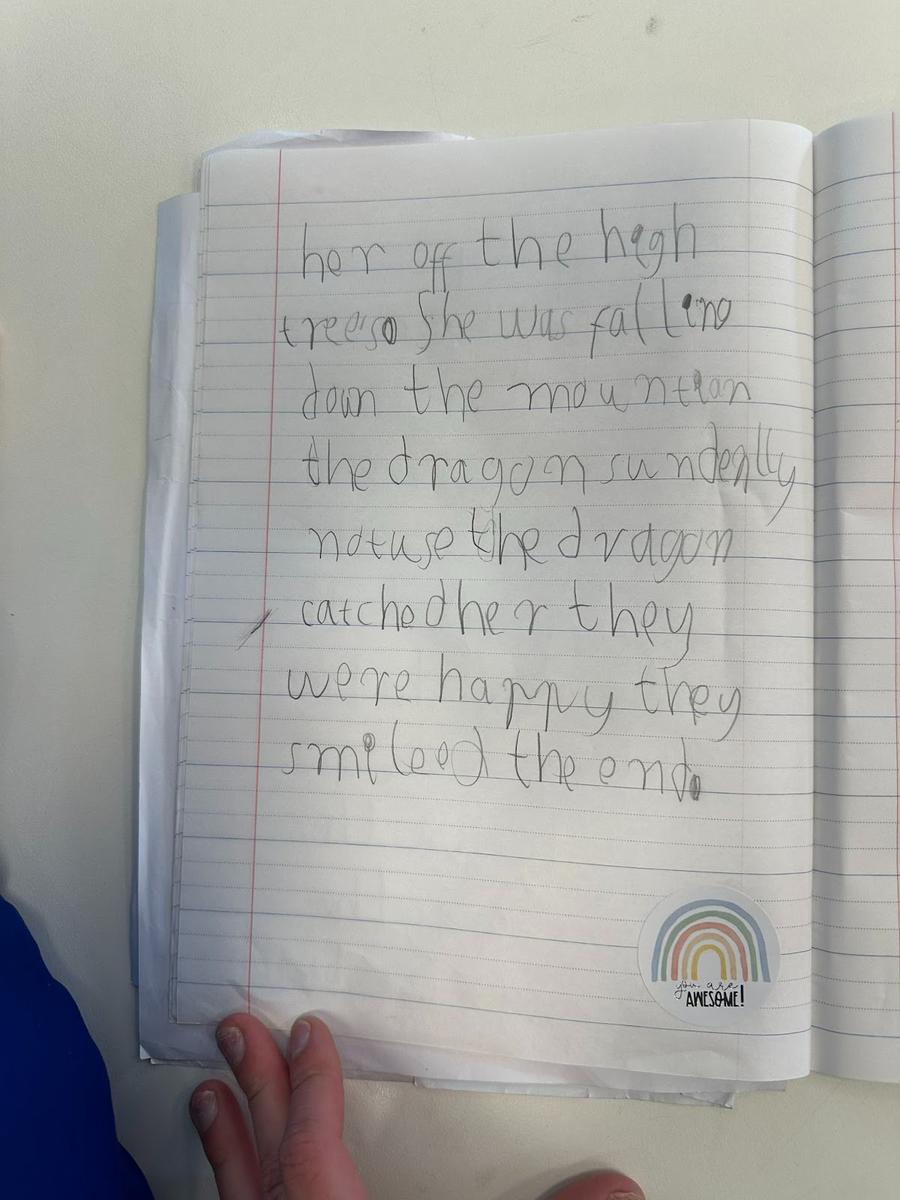 her off the high
treeso She was falling
down the mountian
the dragon sundenlly
notuse the dragon
catched her they
were happy they
smileed the end.
you are
AWESOME!